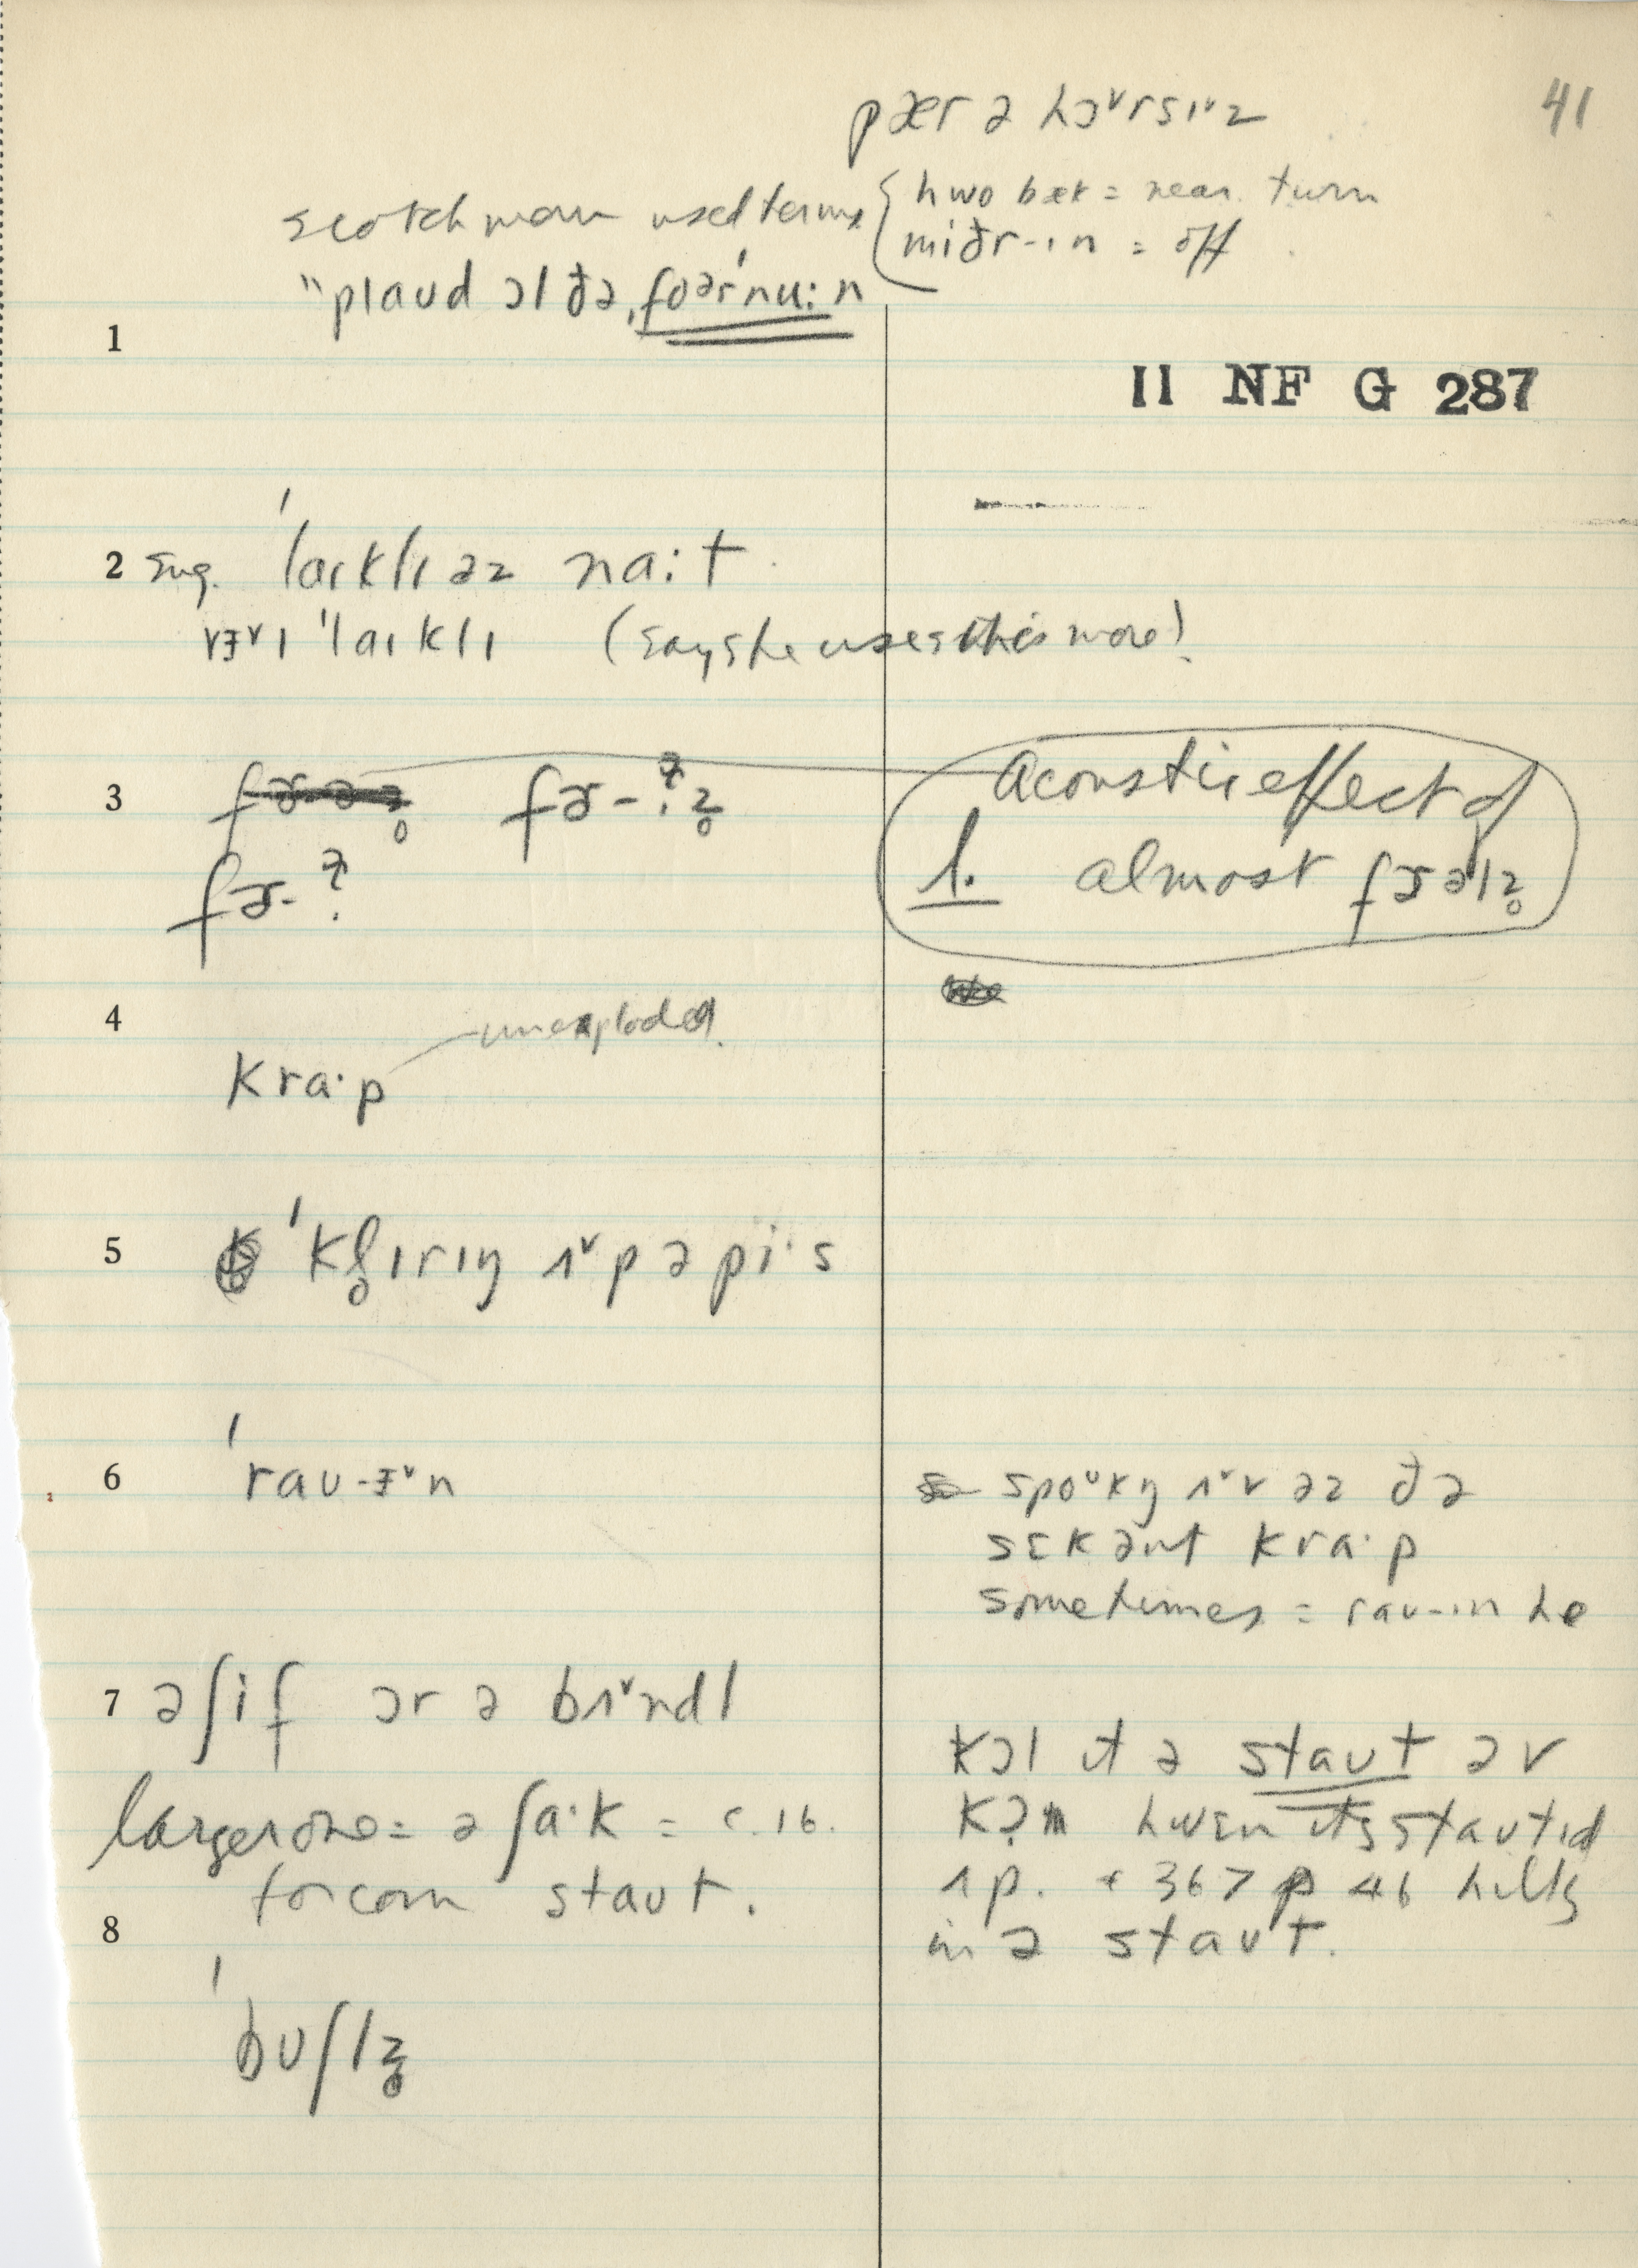 41
pær ə hɔ˅rsɪ˅z
scotch man used terms { hwo bæk = near. turn
miðr-ɪn = off
"plaʊd ɔl ðə ˌfoərˈnu:n
1
II NF G 287
2 Eng. ˈlaɪklɪ əz na:t
vɛ˅ɪ ˈlaɪklɪ (says he uses this more)
3 fɚ-
fɚ-
Acoustic effect of
l. almost
4 unexploded
kra·p
5 ˈkl̥ɪrɪŋ ʌ˅p ə pi·s
6 ˈraʊ-ɛ˅n
spo˅kŋ ʌ˅v əz ðə
sɛkənt kra·p
sometimes = raʊ-ɪn he
7 ə ʃif ɔr ə bʌ˅ndl
larger one = ə ʃa·k = c. 16.
for corn staʊt.
kɔl ɪt ə staʊt əv
hwɛn ɪts staʊtɪd
ʌp. + 36 > 46 hills
in ə staʊt.
8
ˈbʊʃlz̥